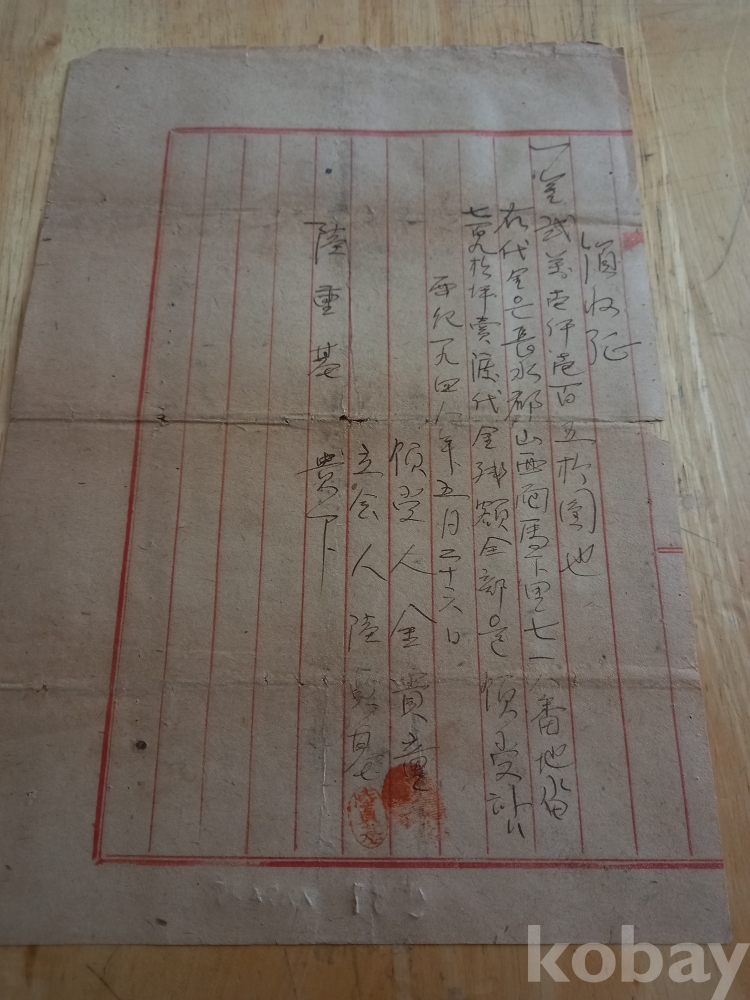 領收証
一金貳萬壹仟壹百五拾圓也
右代金은長水郡山西面馬下里七一八番地畓
七百九拾坪賣渡代金殘額全部을領受함
西紀一九四八年五月二十六日
領受人 金貴童
立会人 陸 基
陸重基 貴下
kobay